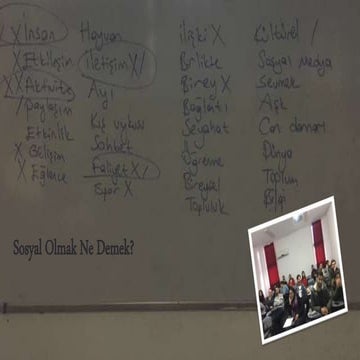 X X İnsan
X Etkileşim
X X Aktivite
/ Paylaşım
Etkinlik
X Gelişim
X Eğlence
Hayvan
iletişim X /
Ayı
Kış uykusu
Sohbet
Faliyet X /
Spor X
ilişki X
Birlikte
Birey X
Bağlantı
Seyahat
Öğrenme
Bireysel
Topluluk
Kültürel /
Sosyal Medya
Sevmek
Aşk
Can damarı
Dünya
Toplum
Bilgi
Sosyal Olmak Ne Demek?